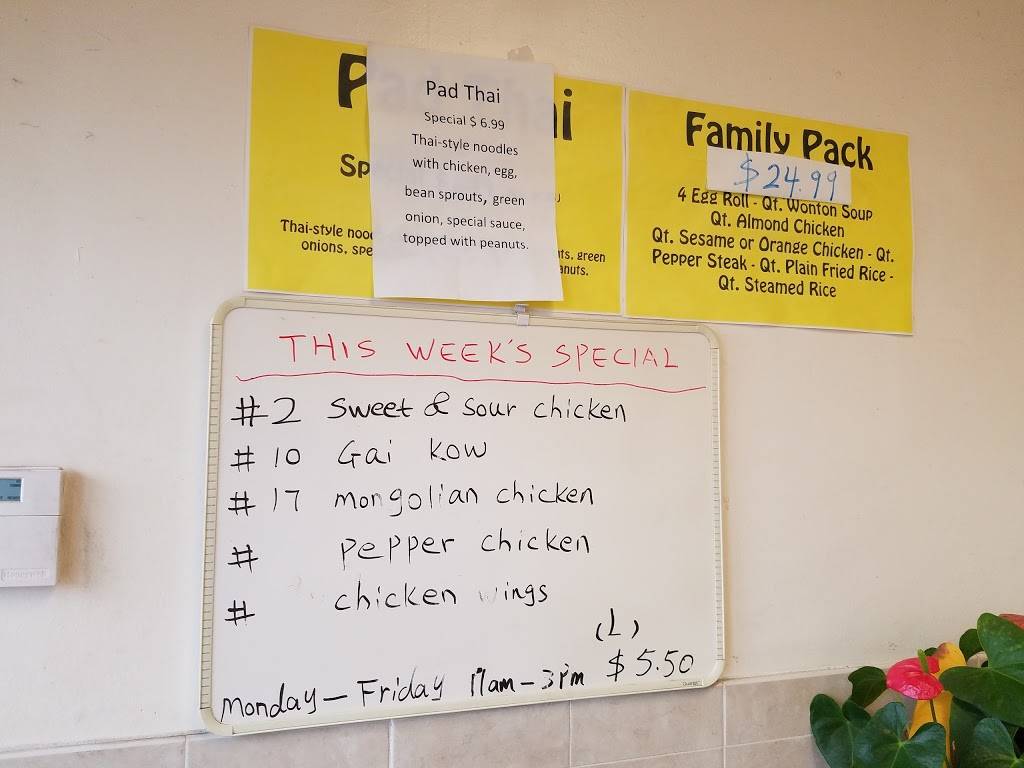 Pad Thai
Special $ 6.99
Thai-style noodles
with chicken, egg,
bean sprouts, green
onion, special sauce,
topped with peanuts.
P ai
Sp
Thai-style noo ts, green
onions, spe anuts.
Family Pack
$24.99
4 Egg Roll - Qt. Wonton Soup
Qt. Almond Chicken
Qt. Sesame or Orange Chicken - Qt.
Pepper Steak - Qt. Plain Fried Rice -
Qt. Steamed Rice
THIS WEEK'S SPECIAL
#2 Sweet & Sour chicken
# 10 Gai Kow
# 17 mongolian chicken
# pepper chicken
# chicken wings
(L)
Monday - Friday 11am - 3pm $5.50
Honeywell